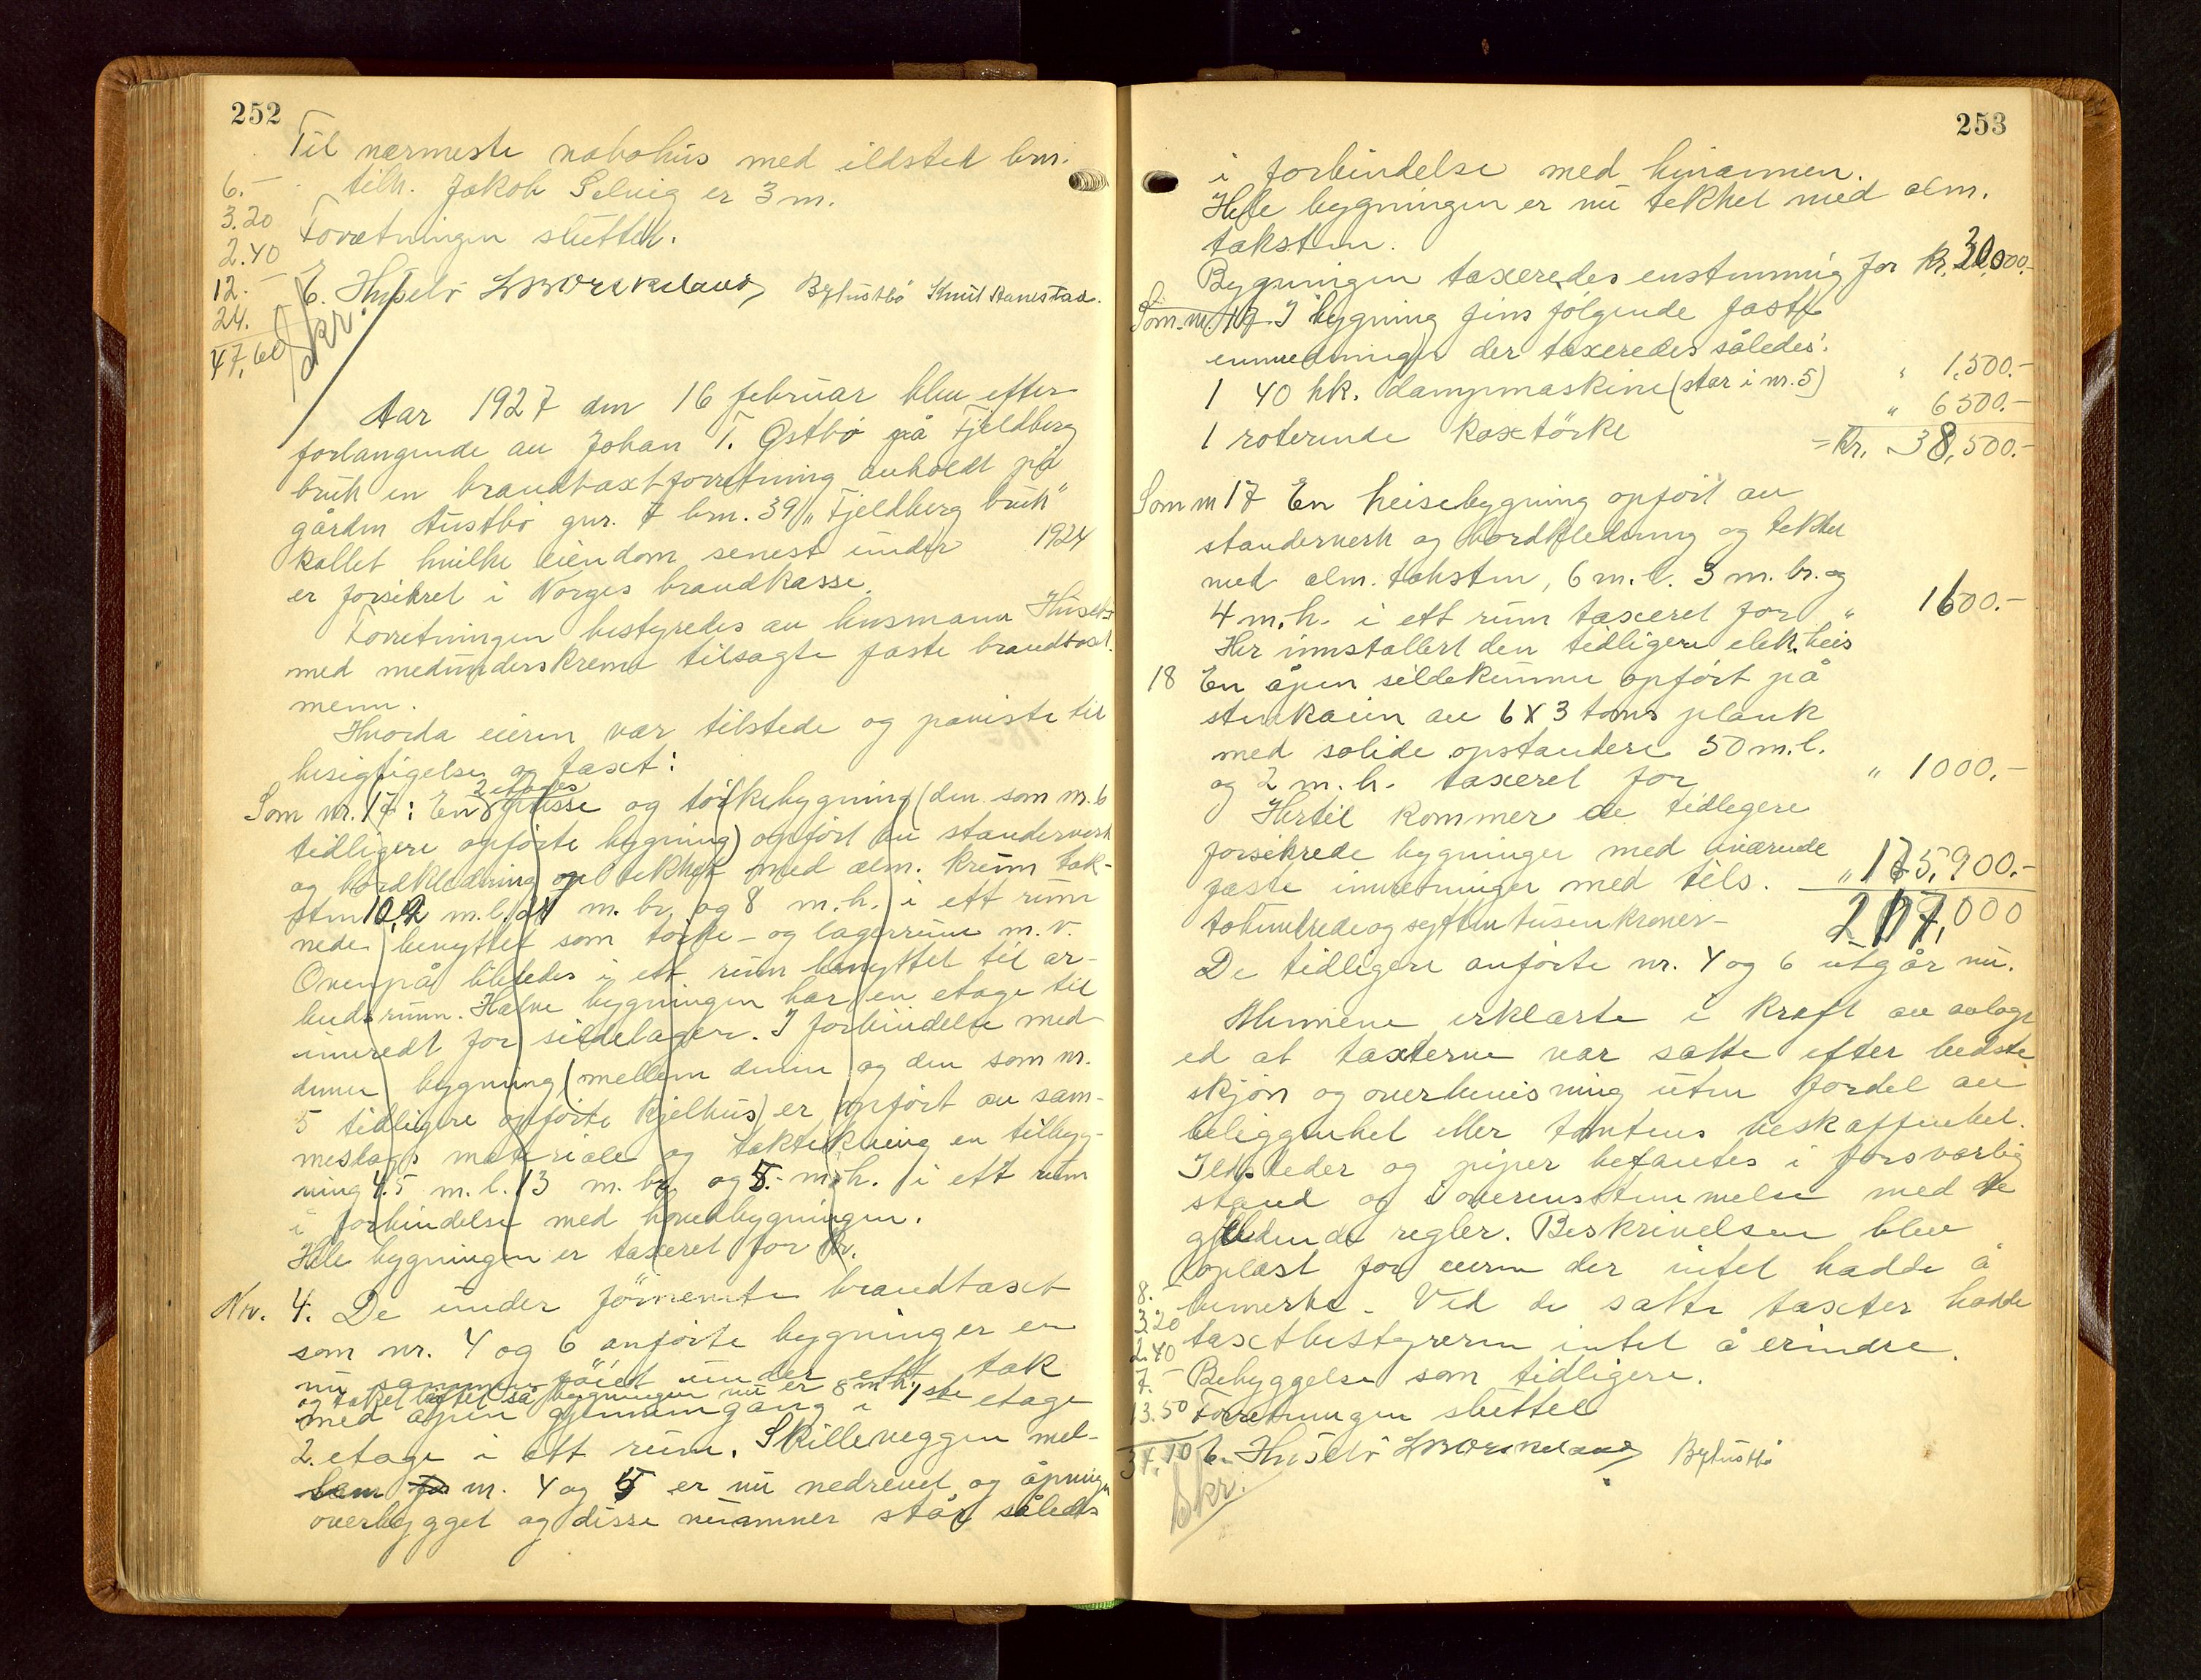 252
Til nærmeste nabohus med ildsted brn.
tilh. Jakob Selvig er 3 m.
Forretningen sluttet.
6.-
3.20
2.40
12.-
24.
47,60
E. Husebø Knut Stanestad.
Skr.
Aar 1927 den 16 februar blev efter
forlangende av Johan T. Østbø på Fjeldberg
bruk en brandtaxtforretning avholdt på
gården Austbø gnr. 7 brn. 39 "Fjeldberg bruk"
kallet hvilke eiendom senest under 1924
er forsikret i Norges brandkasse.
Forretningen bestyredes av lensmann Husebø
med medunderskrevne tilsagte faste brandtaxt-
menn.
Hvorda eieren var tilstede og paaviste til
besigtigelse og taxt:
Som nr. 17: En 2 etages presse og tørkebygning (den som nr. 6
tidligere opførte bygning) opført av standerverk
og bordklædning og tekket med alm. krum tak-
sten 10,2 m.l. m. br. og 8 m.h. i ett rum
nede benyttet som tørke- og lagerrum m.v.
Ovenpå likeledes i ett rum benyttet til ar-
beidsrum. Halve bygningen har en etage til
innredt for sildelager. I forbindelse med
denne bygning (mellem denne og den som nr.
5 tidligere opførte kjelhus) er opført av sam-
meslags materiale og taktekning en tilbyg-
ning 4.5 m.l. 13 m. br. og 5.- m.h. i ett rum
i forbindelse med hovedbygningen.
Hele bygningen er taxeret for kr.
Nr. 4. De under førnevnte brandtaxt
som nr. 4 og 6 anførte bygninger er
nu sammenføiet under ett tak
og taket løftet så bygningen nu er 8 m h.
med åpen gjennemgang i 1ste etage
2. etage i ett rum. Skilleveggen mel-
lem nr. 4 og 5 er nu nedrevet og åpningen
overbygget og disse nummer står således
253
i forbindelse med hinannen.
Hele bygningen er nu tekket med alm.
taksten.
Bygningen taxeredes enstemmig for kr. 30,000.-
Som nr. 17. I bygning fins følgende faste
innredninger der taxeredes således:
1 40 hk. dampmaskine (står i nr. 5) " 1,500.-
1 roterende koxtørke " 6500.-
= Kr. 38,500.-
Som nr 17 En heisebygning opført av
standerverk og bordkledning og tekket
med alm. taksten, 6 m.l. 3 m. br. og
4 m.h. i ett rum taxeret for " 1600.-
Her innstallert den tidligere elek. heis
18 En åpen sildekumme opført på
stenkaien av 6 X 3 toms plank
med solide opstandere 50 m.l.
og 2 m.h. taxeret for " 1000.-
Hertil kommer de tidlegere
forsikrede bygninger med iværende
faste innretninger med tils. " 175,900.-
tohundredeogsytten tusen kroner- 217,000
De tidligere anførte nr. 4 og 6 utgår nu.
Mennene erklærte i kraft av avlagt
ed at taxterne var satte efter bedste
skjøn og overbevisning uten fordel av
beliggenhet eller tomtens beskaffenhet.
Ildsteder og piper befantes i forsvarlig
stand og i overensstemmelse med de
gjeldende regler. Beskrivelsen blev
oplæst for eieren der intet hadde å
bemerke. Ved de satte taxter hadde
taxtbestyreren intet å erindre.
Bebyggelse som tidligere.
Forretningen sluttet
8.-
3.20
2.40
7.-
13.50
34,10
E. Husebø
Skr.